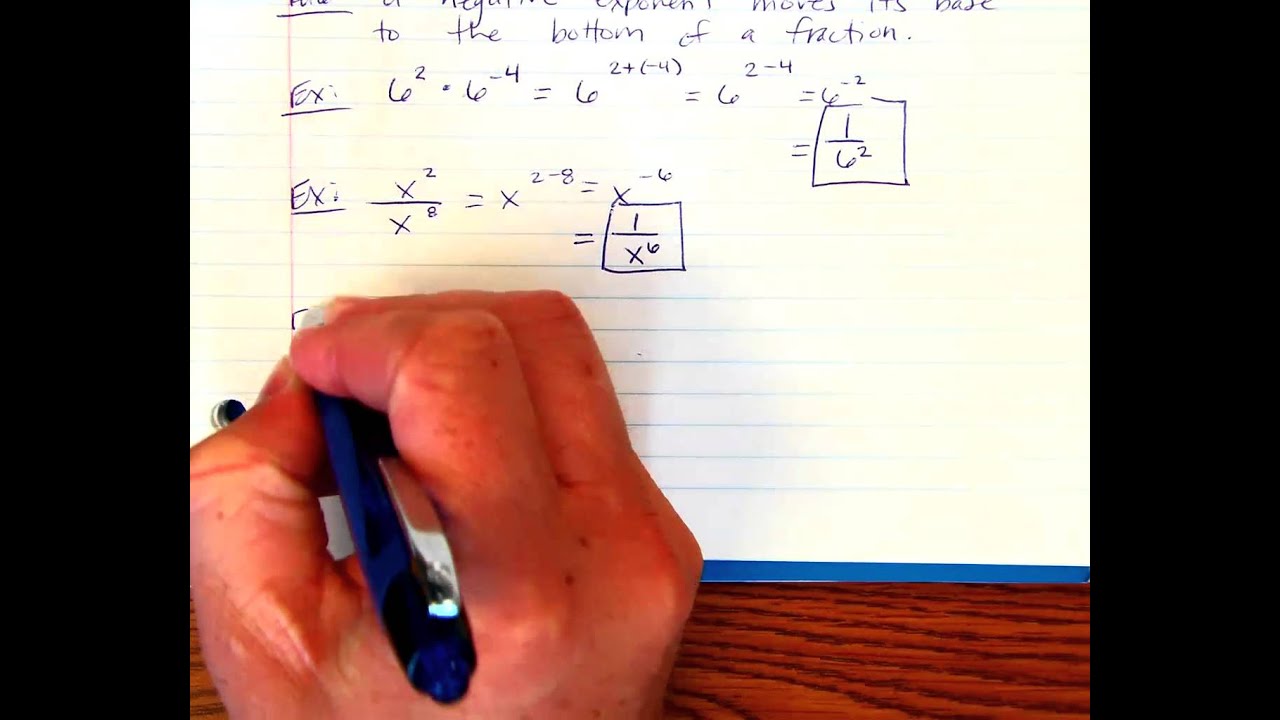 a negative exponent moves its base
to the bottom of a fraction.
Ex: 6² · 6⁻⁴ = 6²⁺⁽⁻⁴⁾ = 6²⁻⁴ = 6⁻²
= 1/6²
Ex: x²/x⁸ = x²⁻⁸ = x⁻⁶
= 1/x⁶